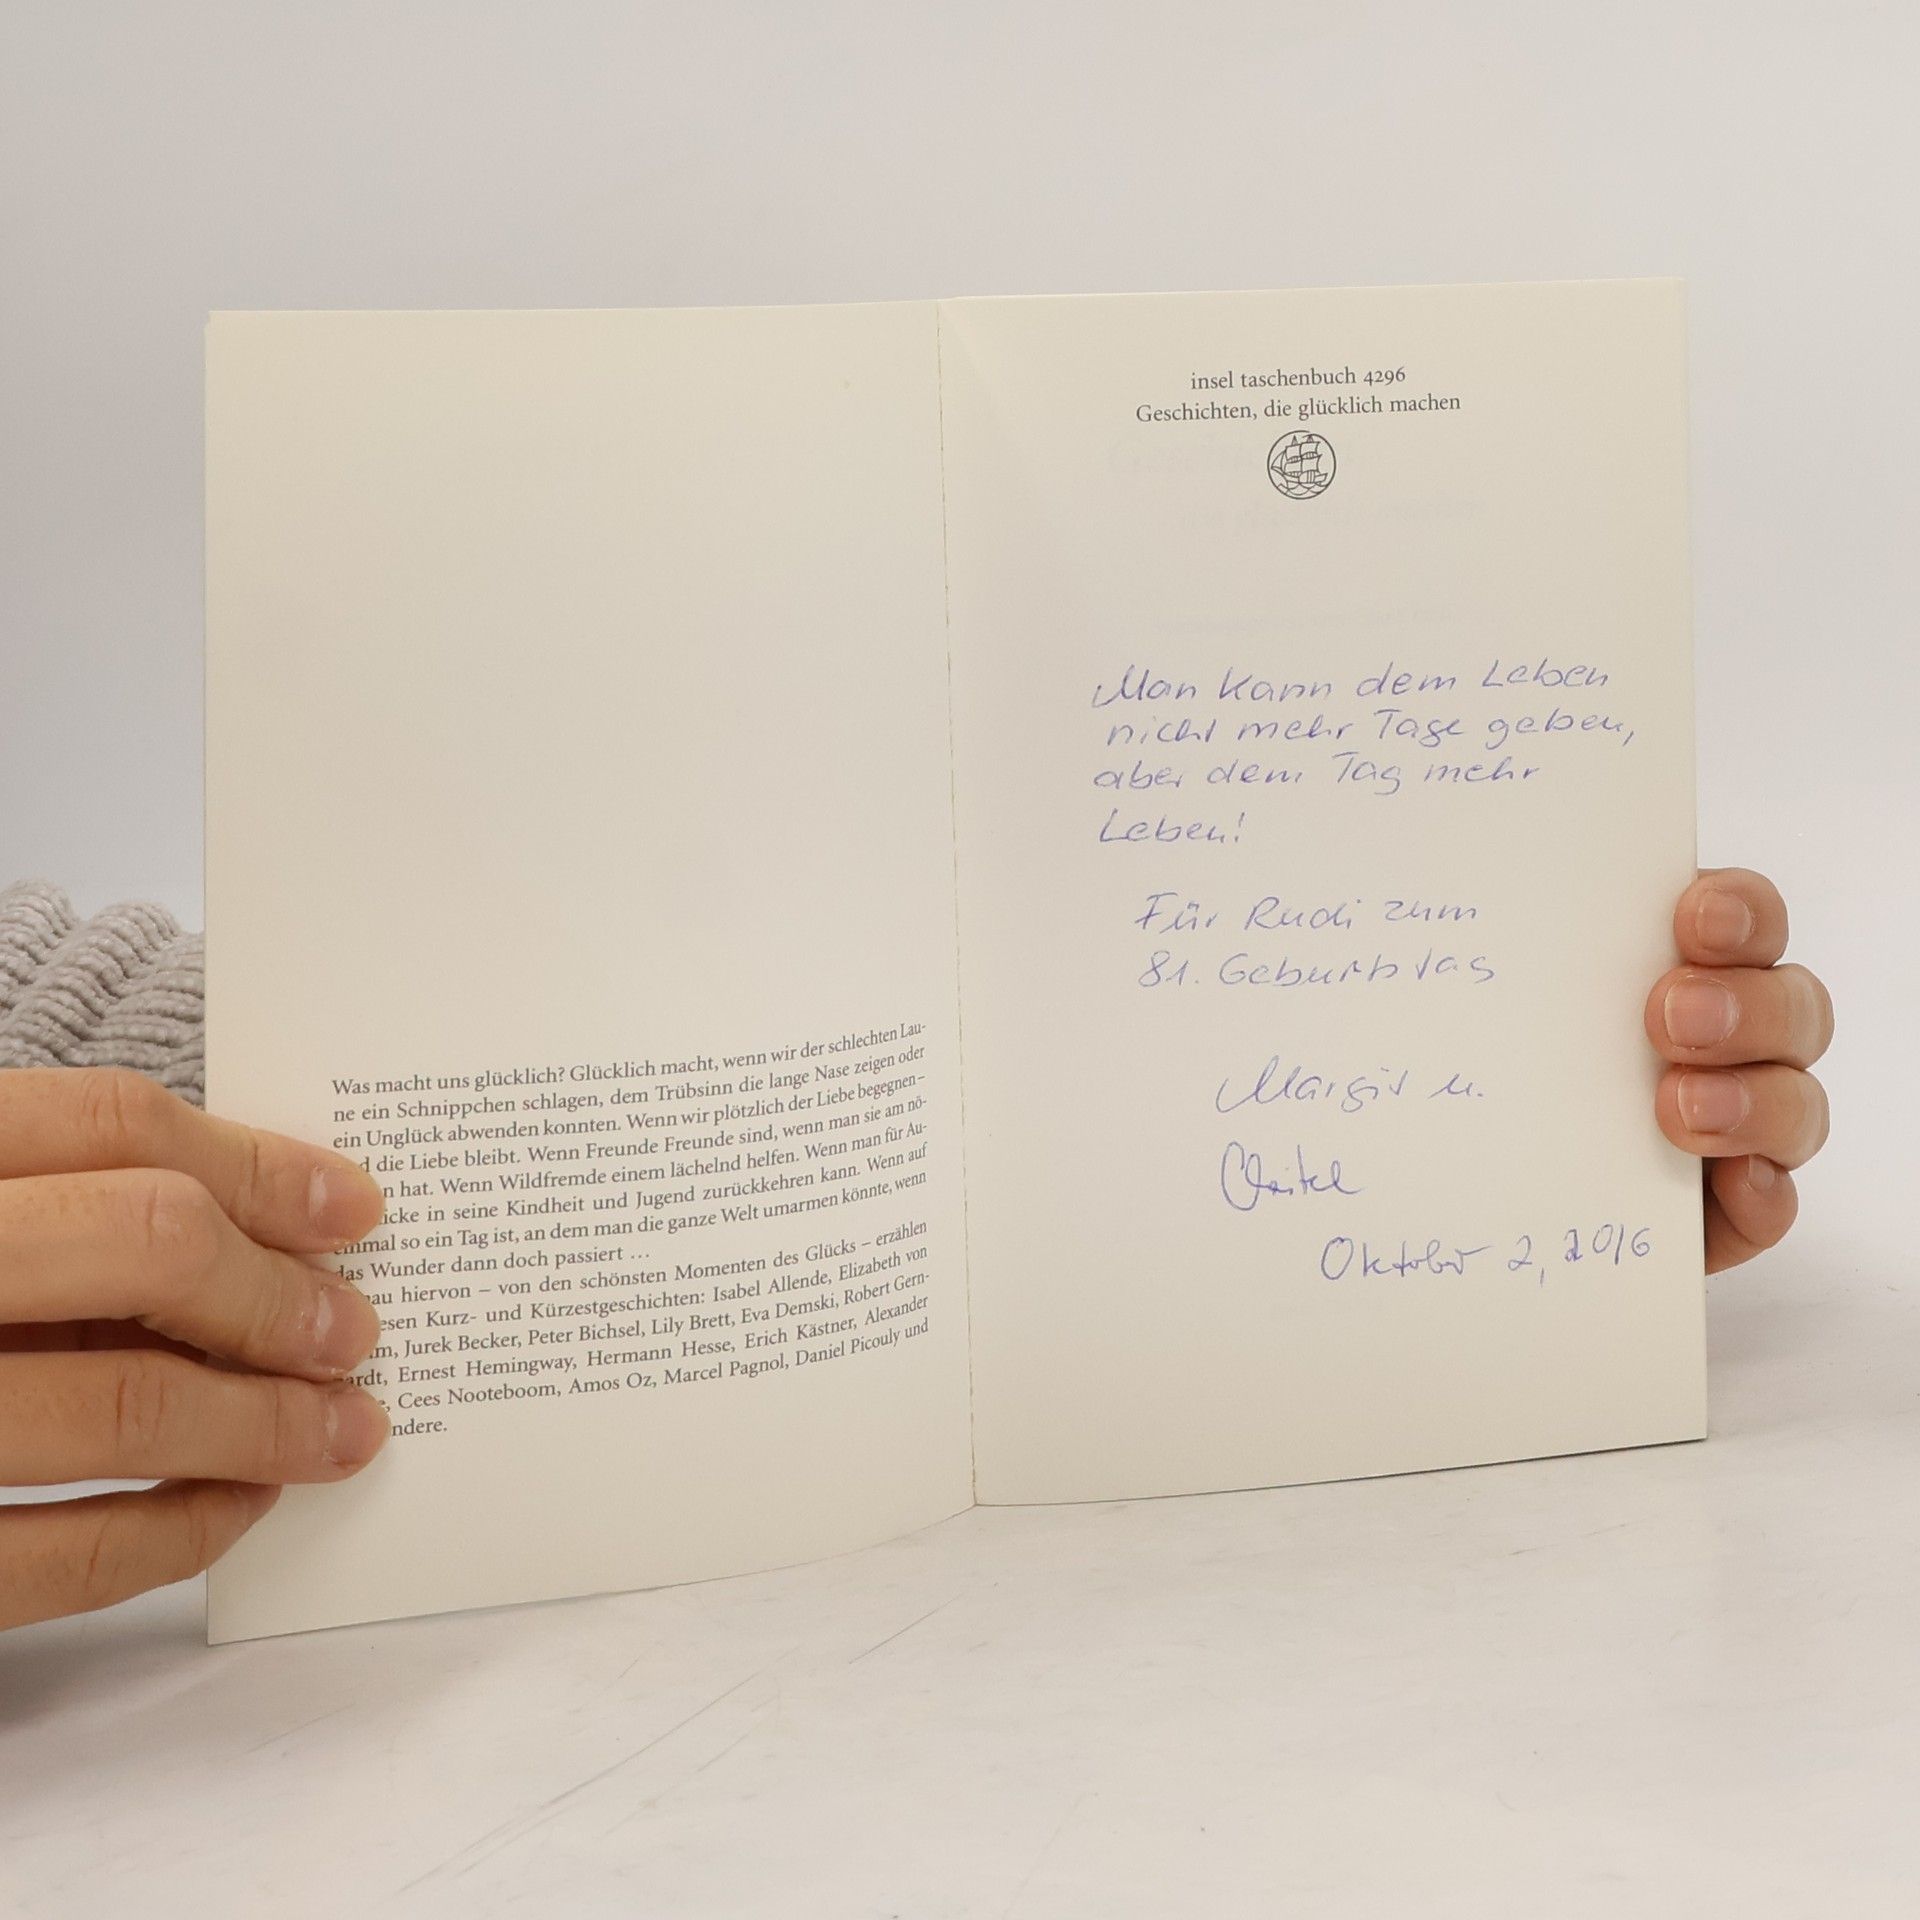 Was macht uns glücklich? Glücklich macht, wenn wir der schlechten Lau-
ne ein Schnippchen schlagen, dem Trübsinn die lange Nase zeigen oder
ein Unglück abwenden konnten. Wenn wir plötzlich der Liebe begegnen –
die Liebe bleibt. Wenn Freunde Freunde sind, wenn man sie am nö-
hat. Wenn Wildfremde einem lächelnd helfen. Wenn man für Au-
in seine Kindheit und Jugend zurückkehren kann. Wenn auf
einmal so ein Tag ist, an dem man die ganze Welt umarmen könnte, wenn
das Wunder dann doch passiert ...
hiervon – von den schönsten Momenten des Glücks – erzählen
Kurz- und Kürzestgeschichten: Isabel Allende, Elizabeth von
Jurek Becker, Peter Bichsel, Lily Brett, Eva Demski, Robert Gern-
Ernest Hemingway, Hermann Hesse, Erich Kästner, Alexander
Cees Nooteboom, Amos Oz, Marcel Pagnol, Daniel Picouly und
insel taschenbuch 4296
Geschichten, die glücklich machen
Man kann dem Leben
nicht mehr Tage geben,
aber dem Tag mehr
Leben!
Für Rudi zum
81. Geburtstag
Margit u.
Oktober 2, 2016